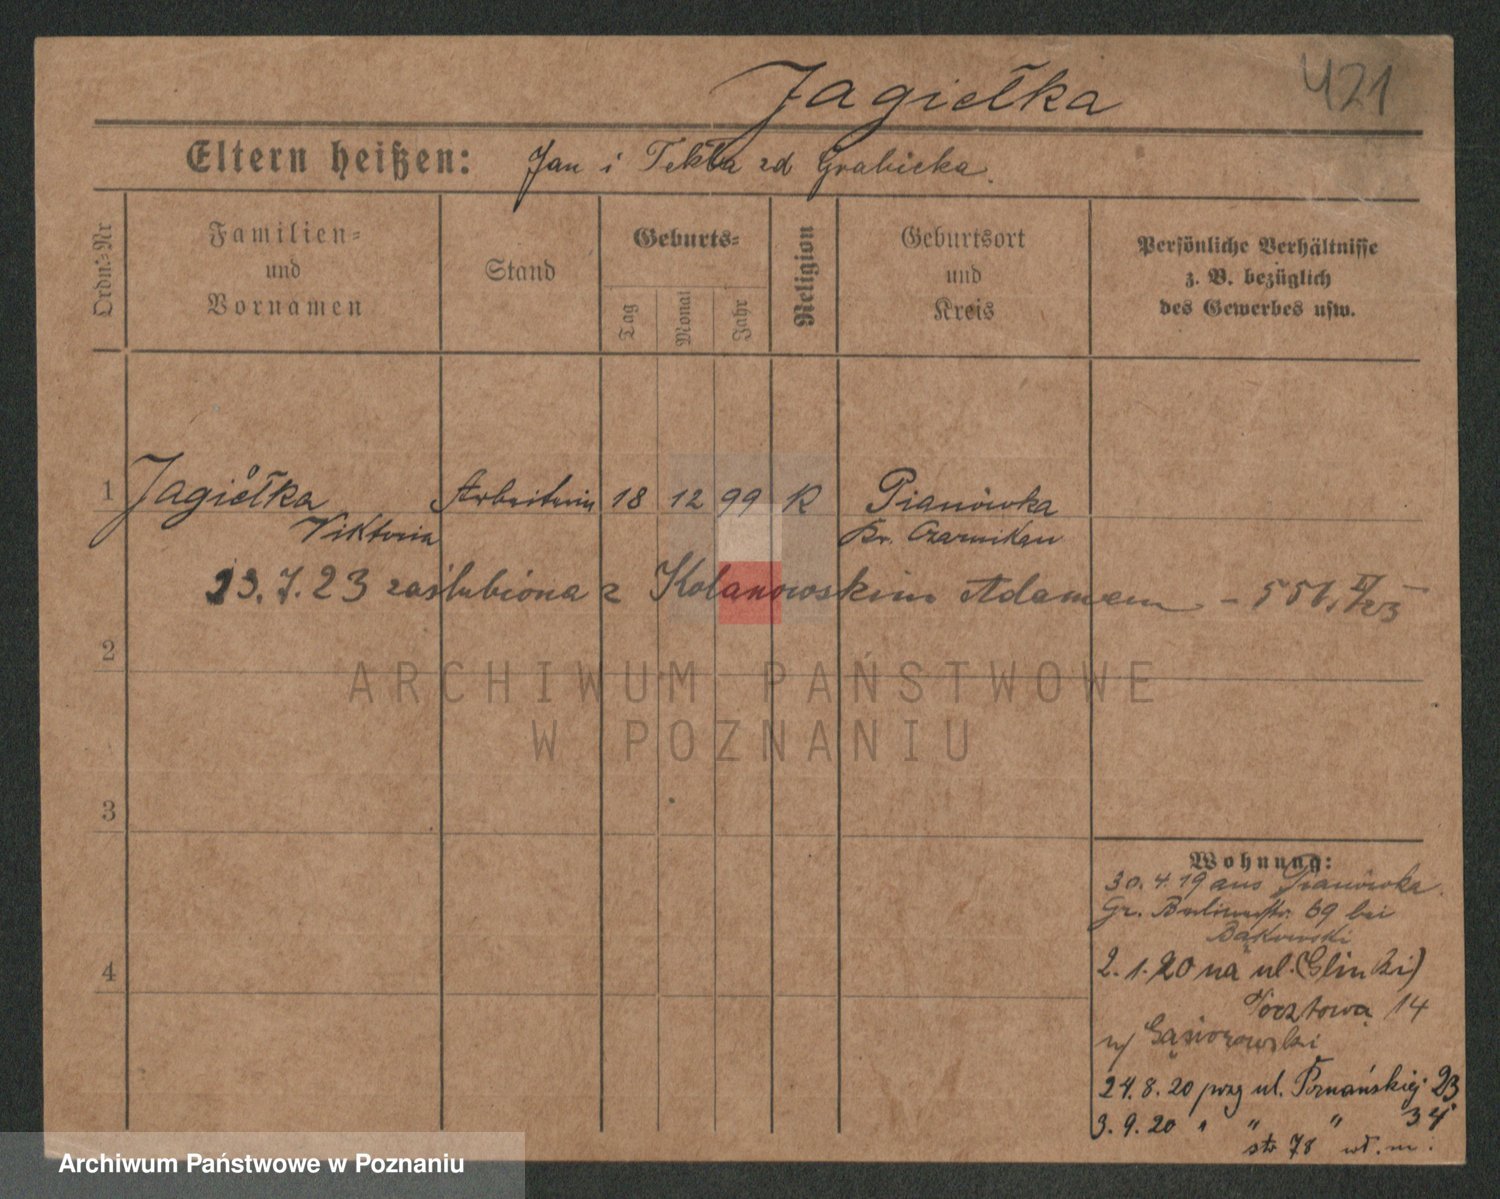 Jagiełka
421
Eltern heißen: Jan i Tekla zd Grabicka.
Ordn.-Nr
Familien-
und
Vornamen
Stand
Geburts-
Tag
Monat
Jahr
Religion
Geburtsort
und
Kreis
Persönliche Verhältnisse
z. B. bezüglich
des Gewerbes usw.
1 Jagiełka Arbeiterin 18 12 99 K Pianówka
Viktoria Kr. Czarnikau
23.7.23 zaślubiona z Kolanowskim Adamem
2
ARCHIWUM PAŃSTWOWE
W POZNANIU
3
Wohnung:
30.4.19 aus Pianówka.
Gr. 69 bei
Bąkowski
4
2.1.20 na ul. Glinki)
Pocztowa 14
Gąsiorowski
24.8.20 przy ul. Poznańskiej 23
3.9.20 " " " 34
78
Archiwum Państwowe w Poznaniu